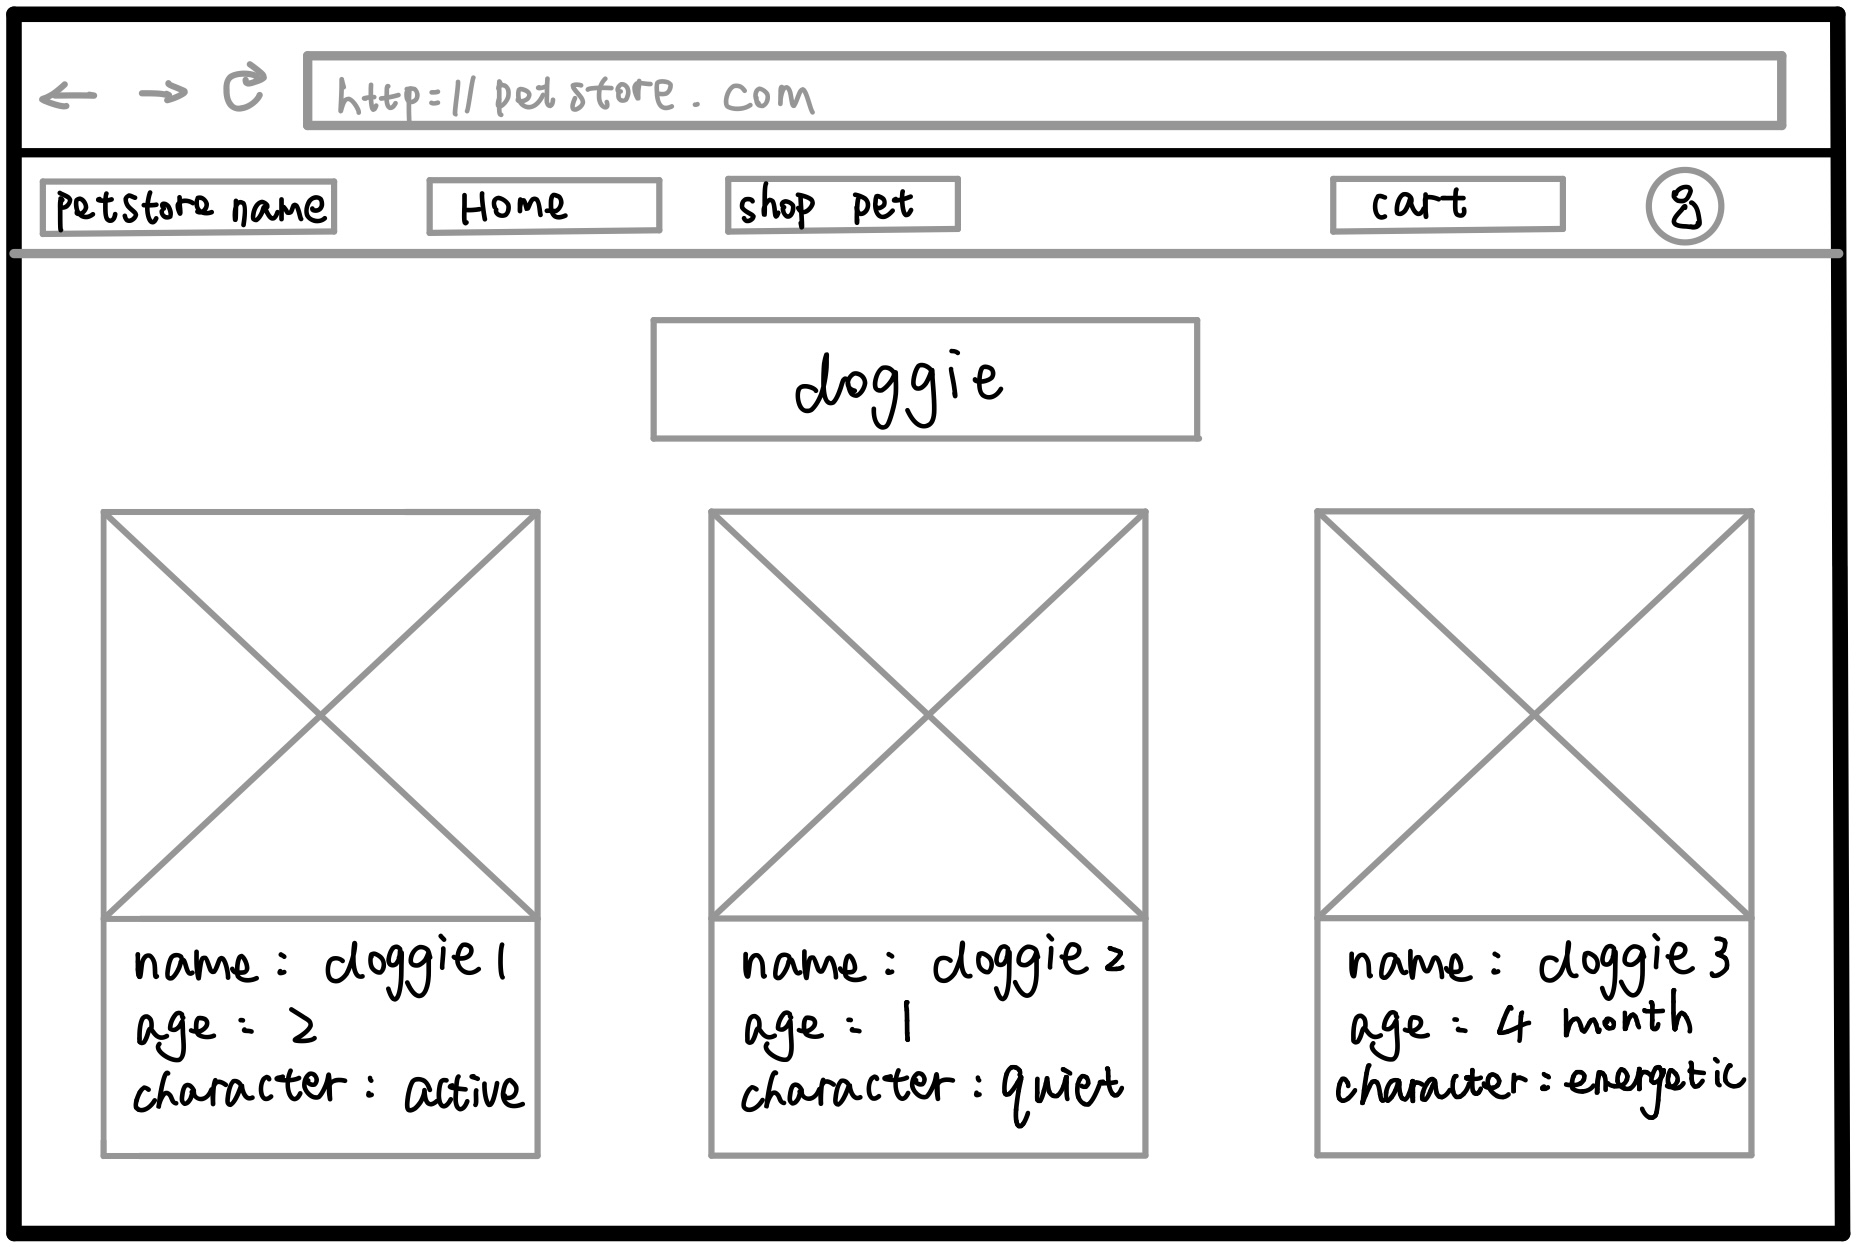 http://petstore.com
petstore name Home shop pet cart
doggie
name: doggie 1
age: 2
character: active
name: doggie 2
age: 1
character: quiet
name: doggie 3
age: 4 month
character: energetic